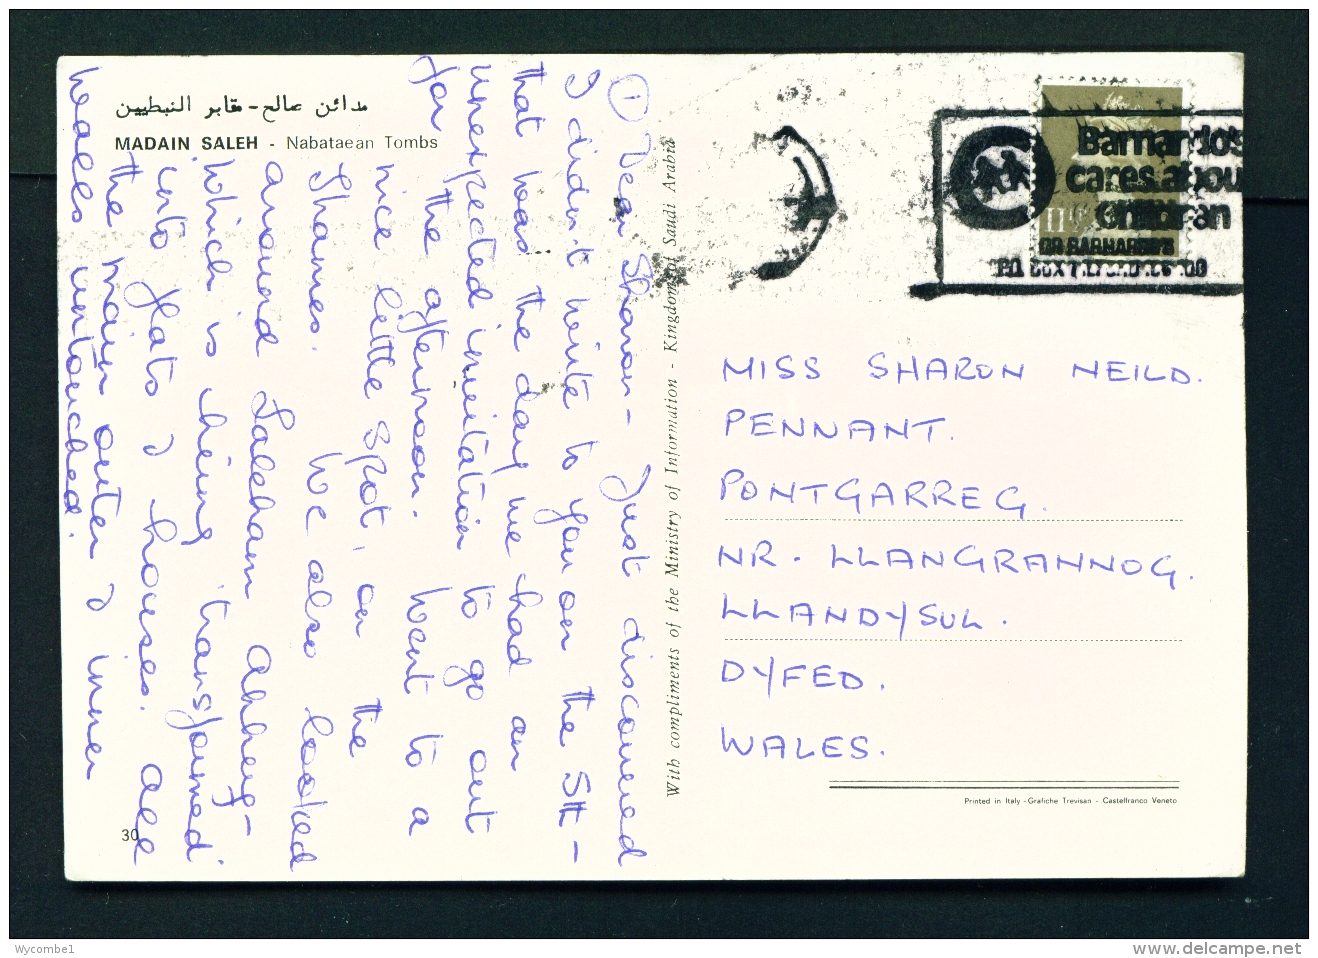 مدائن صالح - مقابر النبطيين
MADAIN SALEH - Nabataean Tombs
① Dear Sharon - Just discovered
I didn't write to you on the 5th -
that was the day we had an
unexpected invitation to go out
for the afternoon. Went to a
nice little spot, on the
Thames. We also looked
around Laleham Abbey -
which is being transformed
into flats & houses. All
the main outer & inner
walls untouched.
30
With compliments of the Ministry of Information - Kingdom of Saudi Arabia
Barnardo's
cares about
children
DR BARNARDO'S
PO BOX
11½P
MISS SHARON NEILD.
PENNANT.
PONTGARREG.
NR. LLANGRANNOG.
LLANDYSUL.
DYFED.
WALES.
Printed in Italy - Grafiche Trevisan - Castelfranco Veneto
Wycombe1
www.delcampe.net